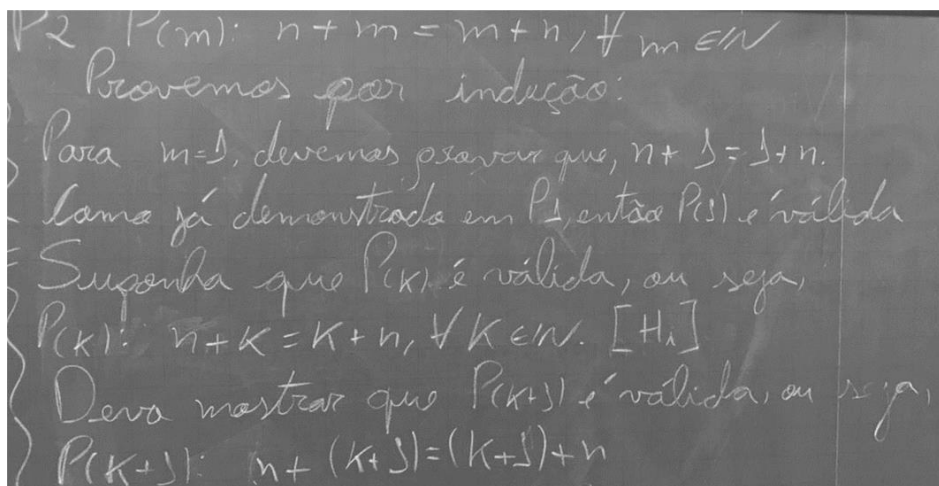 P2 P(m): n + m = m + n, ∀ m ∈ IN
Provemos por indução:
Para m=1, devemos provar que, n + 1 = 1 + n.
Como já demonstrado em P1, então P(1) é válida
Suponha que P(K) é válida, ou seja,
P(K): n + K = K + n, ∀ K ∈ IN. [Hi]
Devo mostrar que P(K+1) é válida, ou seja,
P(K+1): n + (K+1) = (K+1) + n